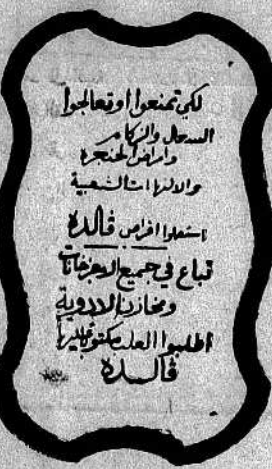 لكي تمنعوا اوتعالجوا
السعال والزكام
وامراض الحنجرة
والالتهابات الشعبية
استعملوا اقراص ڤالدة
تباع في جميع الاجزخانات
ومخازن الادوية
اطلبوا العلب مكتوب عليها
ڤالدة